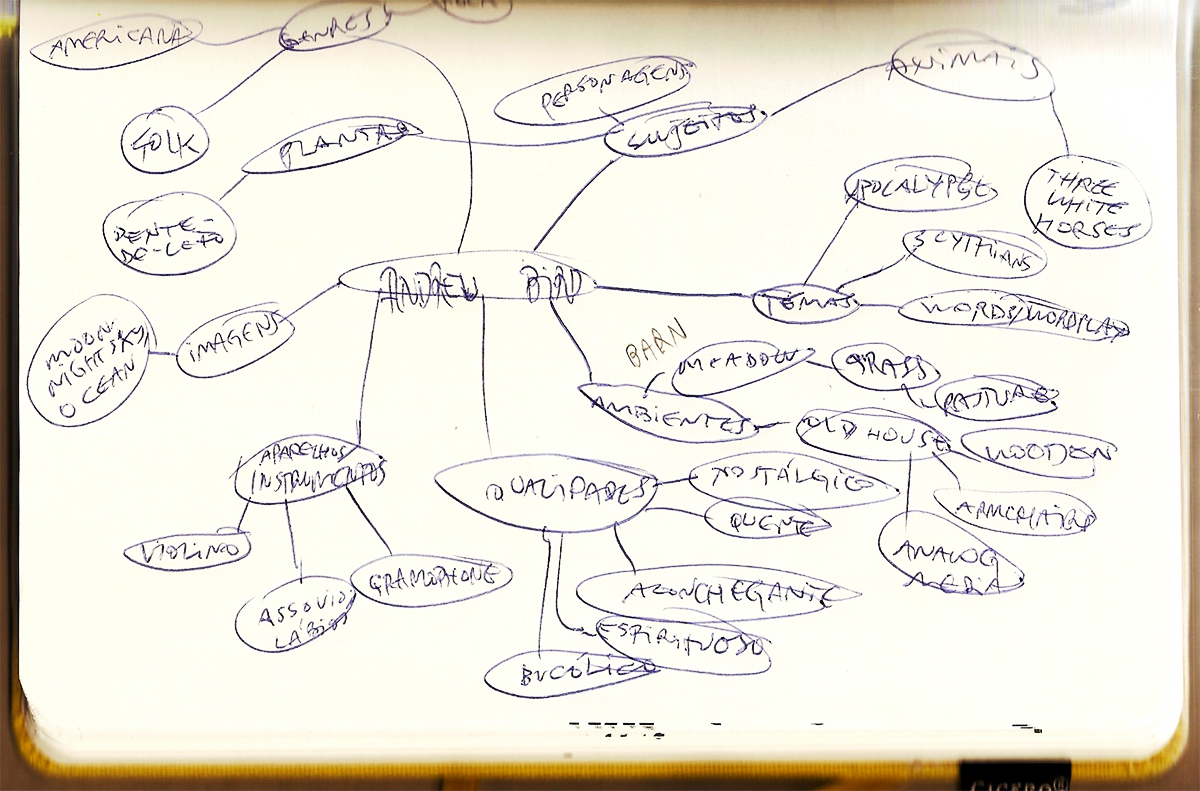 AMERICANA
GENRES
FOLK
PLANTAS
DENTE-
DE-LEÃO
PERSONAGENS
SUJEITOS
ANIMAIS
THREE
WHITE
HORSES
ANDREW BIRD
APOCALYPSE
SCYTHIANS
TEMAS
WORDS/WORDPLAY
IMAGENS
MOON
NIGHT SKY
OCEAN
BARN
MEADOW
GRASS
PASTURES
AMBIENTES
OLD HOUSE
WOODEN
ARMCHAIRS
ANALOG
MEDIA
APARELHOS
INSTRUMENTOS
VIOLINO
ASSOVIO
LÁBIOS
GRAMOPHONE
QUALIDADES
NOSTÁLGICO
QUENTE
ACONCHEGANTE
ESPIRITUOSO
BUCÓLICO
CICERO®